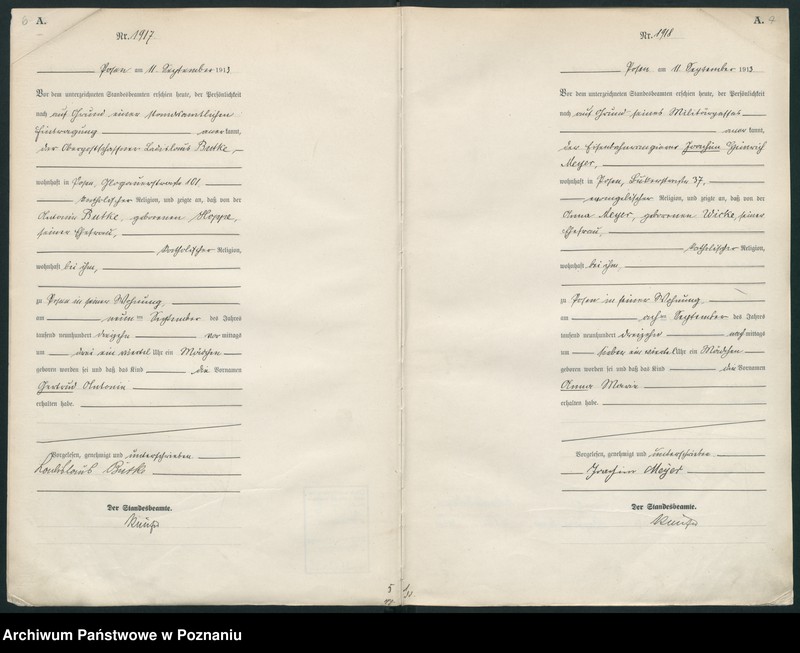 A.
Nr. 1917
Posen am 11. September 1913
Vor dem unterzeichneten Standesbeamten erschien heute, der Persönlichkeit
nach auf Grund einer standesamtlichen
Eintragung anerkannt,
der Oberpostschaffner Ladislaus Butke,
wohnhaft in Posen, Glogauerstraße 101,
katholischer Religion, und zeigte an, daß von der
Antonie Butke, geborenen Hoppe,
seiner Ehefrau,
katholischer Religion,
wohnhaft bei ihm,
zu Posen in seiner Wohnung
am neunten September des Jahres
tausend neunhundert dreizehn vormittags
um drei ein viertel Uhr ein Mädchen
geboren worden sei und daß das Kind die Vornamen
Gertrud Antonie
erhalten habe.
Vorgelesen, genehmigt und unterschrieben
Ladislaus Butke
Der Standesbeamte.
A.
Nr. 1918
Posen am 11. September 1913
Vor dem unterzeichneten Standesbeamten erschien heute, der Persönlichkeit
nach auf Grund seines Militärpasses
anerkannt,
der Eisenbahnrangierer Joachim Heinrich
Meyer,
wohnhaft in Posen, 37,
evangelischer Religion, und zeigte an, daß von der
Anna Meyer, geborenen Wicke, seiner
Ehefrau,
katholischer Religion,
wohnhaft bei ihm,
zu Posen in seiner Wohnung
am achten September des Jahres
tausend neunhundert dreizehn nachmittags
um sieben ein viertel Uhr ein Mädchen
geboren worden sei und daß das Kind die Vornamen
Anna Marie
erhalten habe.
Vorgelesen, genehmigt und unterschrieben
Joachim Meyer
Der Standesbeamte.
Archiwum Państwowe w Poznaniu